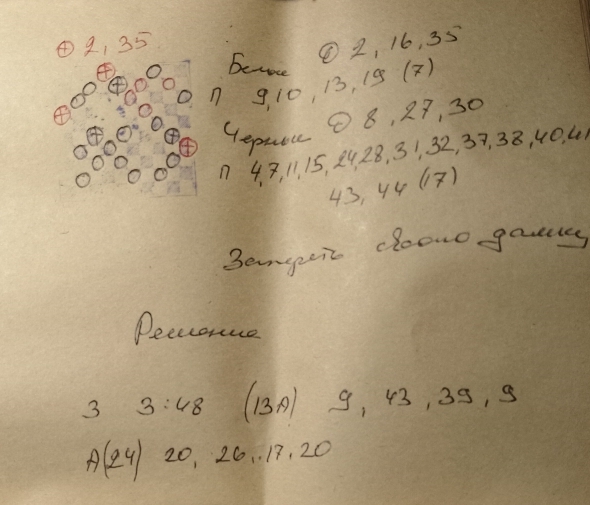 ⊕ 2, 35
Белые ⊕ 2, 16, 35
П 9, 10, 13, 19 (7)
Черные ⊕ 8, 27, 30
П 4, 7, 11, 15, 24, 28, 31, 32, 37, 38, 40, 41
43, 44 (17)
Запереть дамку
Решение
3 3:48 (13А) 9, 43, 39, 9
А(24) 20, 26, 17, 20